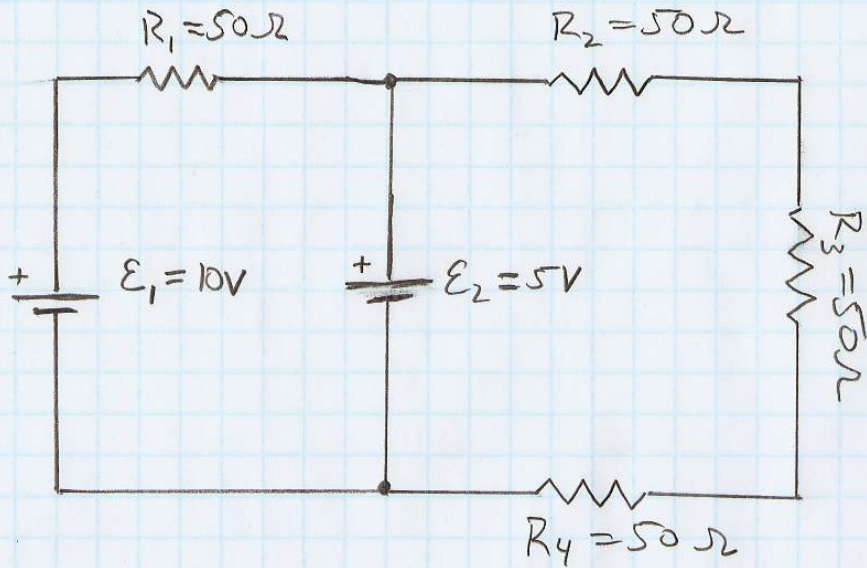 R₁ = 50Ω
R₂ = 50Ω
+
ℰ₁ = 10V
+
ℰ₂ = 5V
R₃ = 50Ω
R₄ = 50Ω